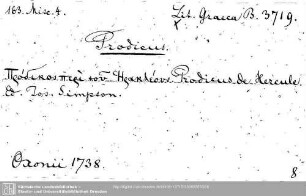 163. Misc. 4.
Lit. Graeca B. 3719.
Prodicus.
Πρόδικος περὶ τοῦ Ἡρακλέους Prodicus de Hercule
ed. Jos. Simpson.
Oxonii 1738.
8